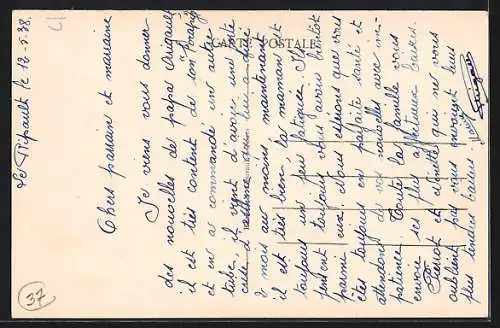 Le Tripault le 12-5-38.
Chers parrain et marraine
Je viens vous donner
des nouvelles de papa Origault
il est très content de son
et en a commandé un autre
tube, il vient d'avoir une
celle d'
à mois aux moins, maintenant
il est très bien, la maman est
toujours un peu fatiguée. Ils
pensent toujours vous avoir bientôt
parmi eux. Nous espérons que vous
êtes toujours en parfaite santé et
attendons de vos nouvelles avec im-
patience. Toute la famille vous
envoie ses plus affectueux baisers.
Pierrot et Ginette qui ne vous
oublient pas vous envoient leurs
plus tendres baisers
CARTE POSTALE
37